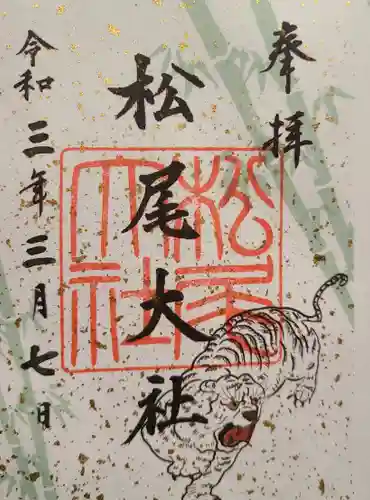 奉拝
松尾大社
松尾大社
令和三年三月七日